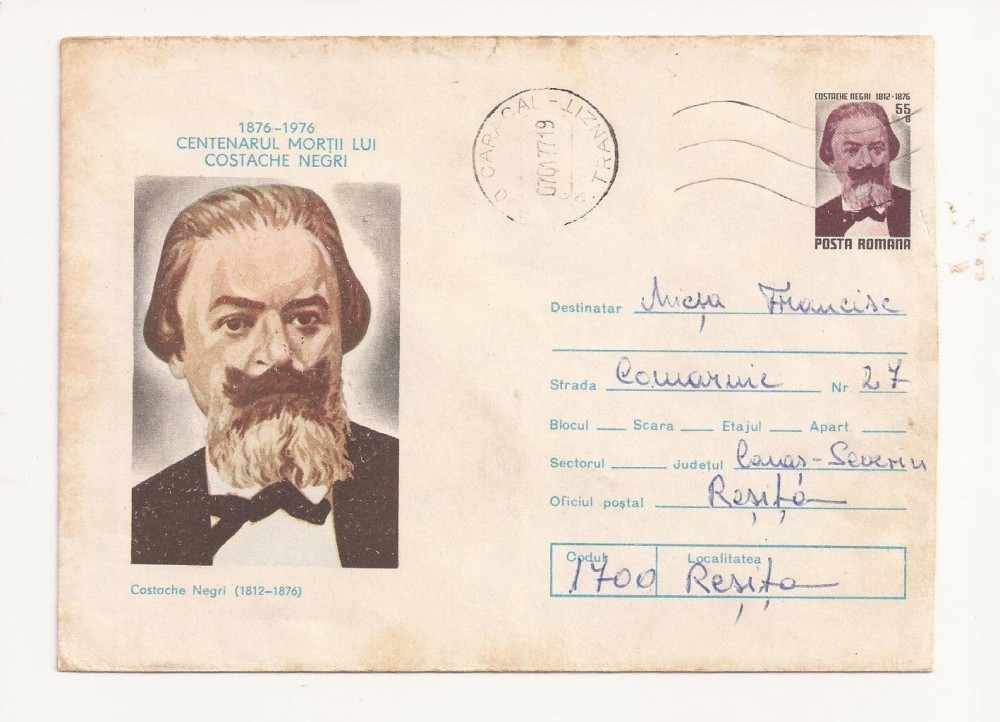 1876-1976
CENTENARUL MORȚII LUI
COSTACHE NEGRI
Costache Negri (1812-1876)
CARACAL - TRANZIT
07 01 77 19
COSTACHE NEGRI 1812-1876
55 B
POSTA ROMANA
Destinatar Micșa Francisc
Strada Comarnic Nr. 27
Blocul Scara Etajul Apart.
Sectorul Județul Caraș-Severin
Oficiul poștal Reșița
Codul Localitatea
1700 Reșița